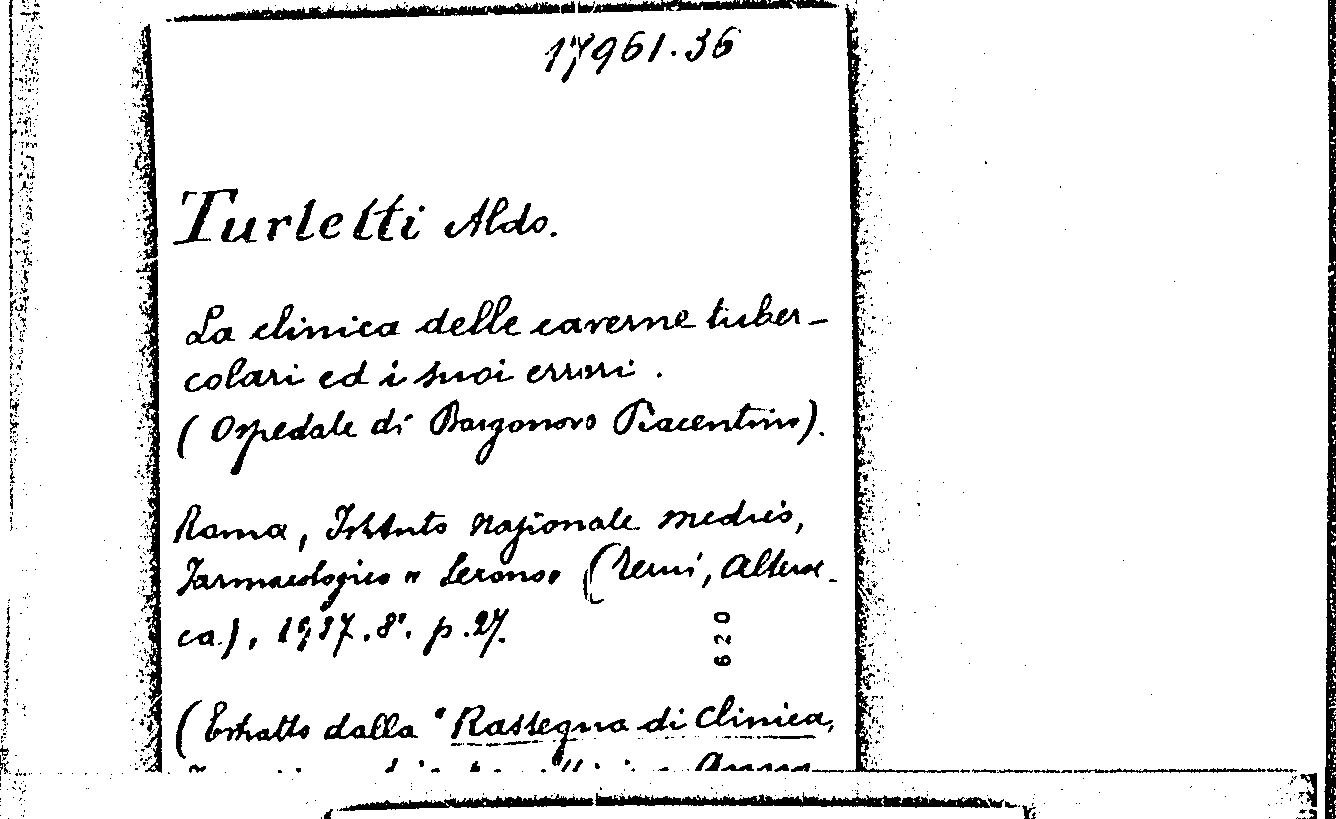 17961.36
Turletti Aldo.
La clinica delle caverne tuber-
colari ed i suoi errori.
(Ospedale di Borgonovo Piacentino).
Roma, Istituto nazionale medico,
Farmacologico "Serono" (Terni, Alteroc-
ca), 1937.8°. p.27.
620
(Estratto dalla "Rassegna di Clinica,